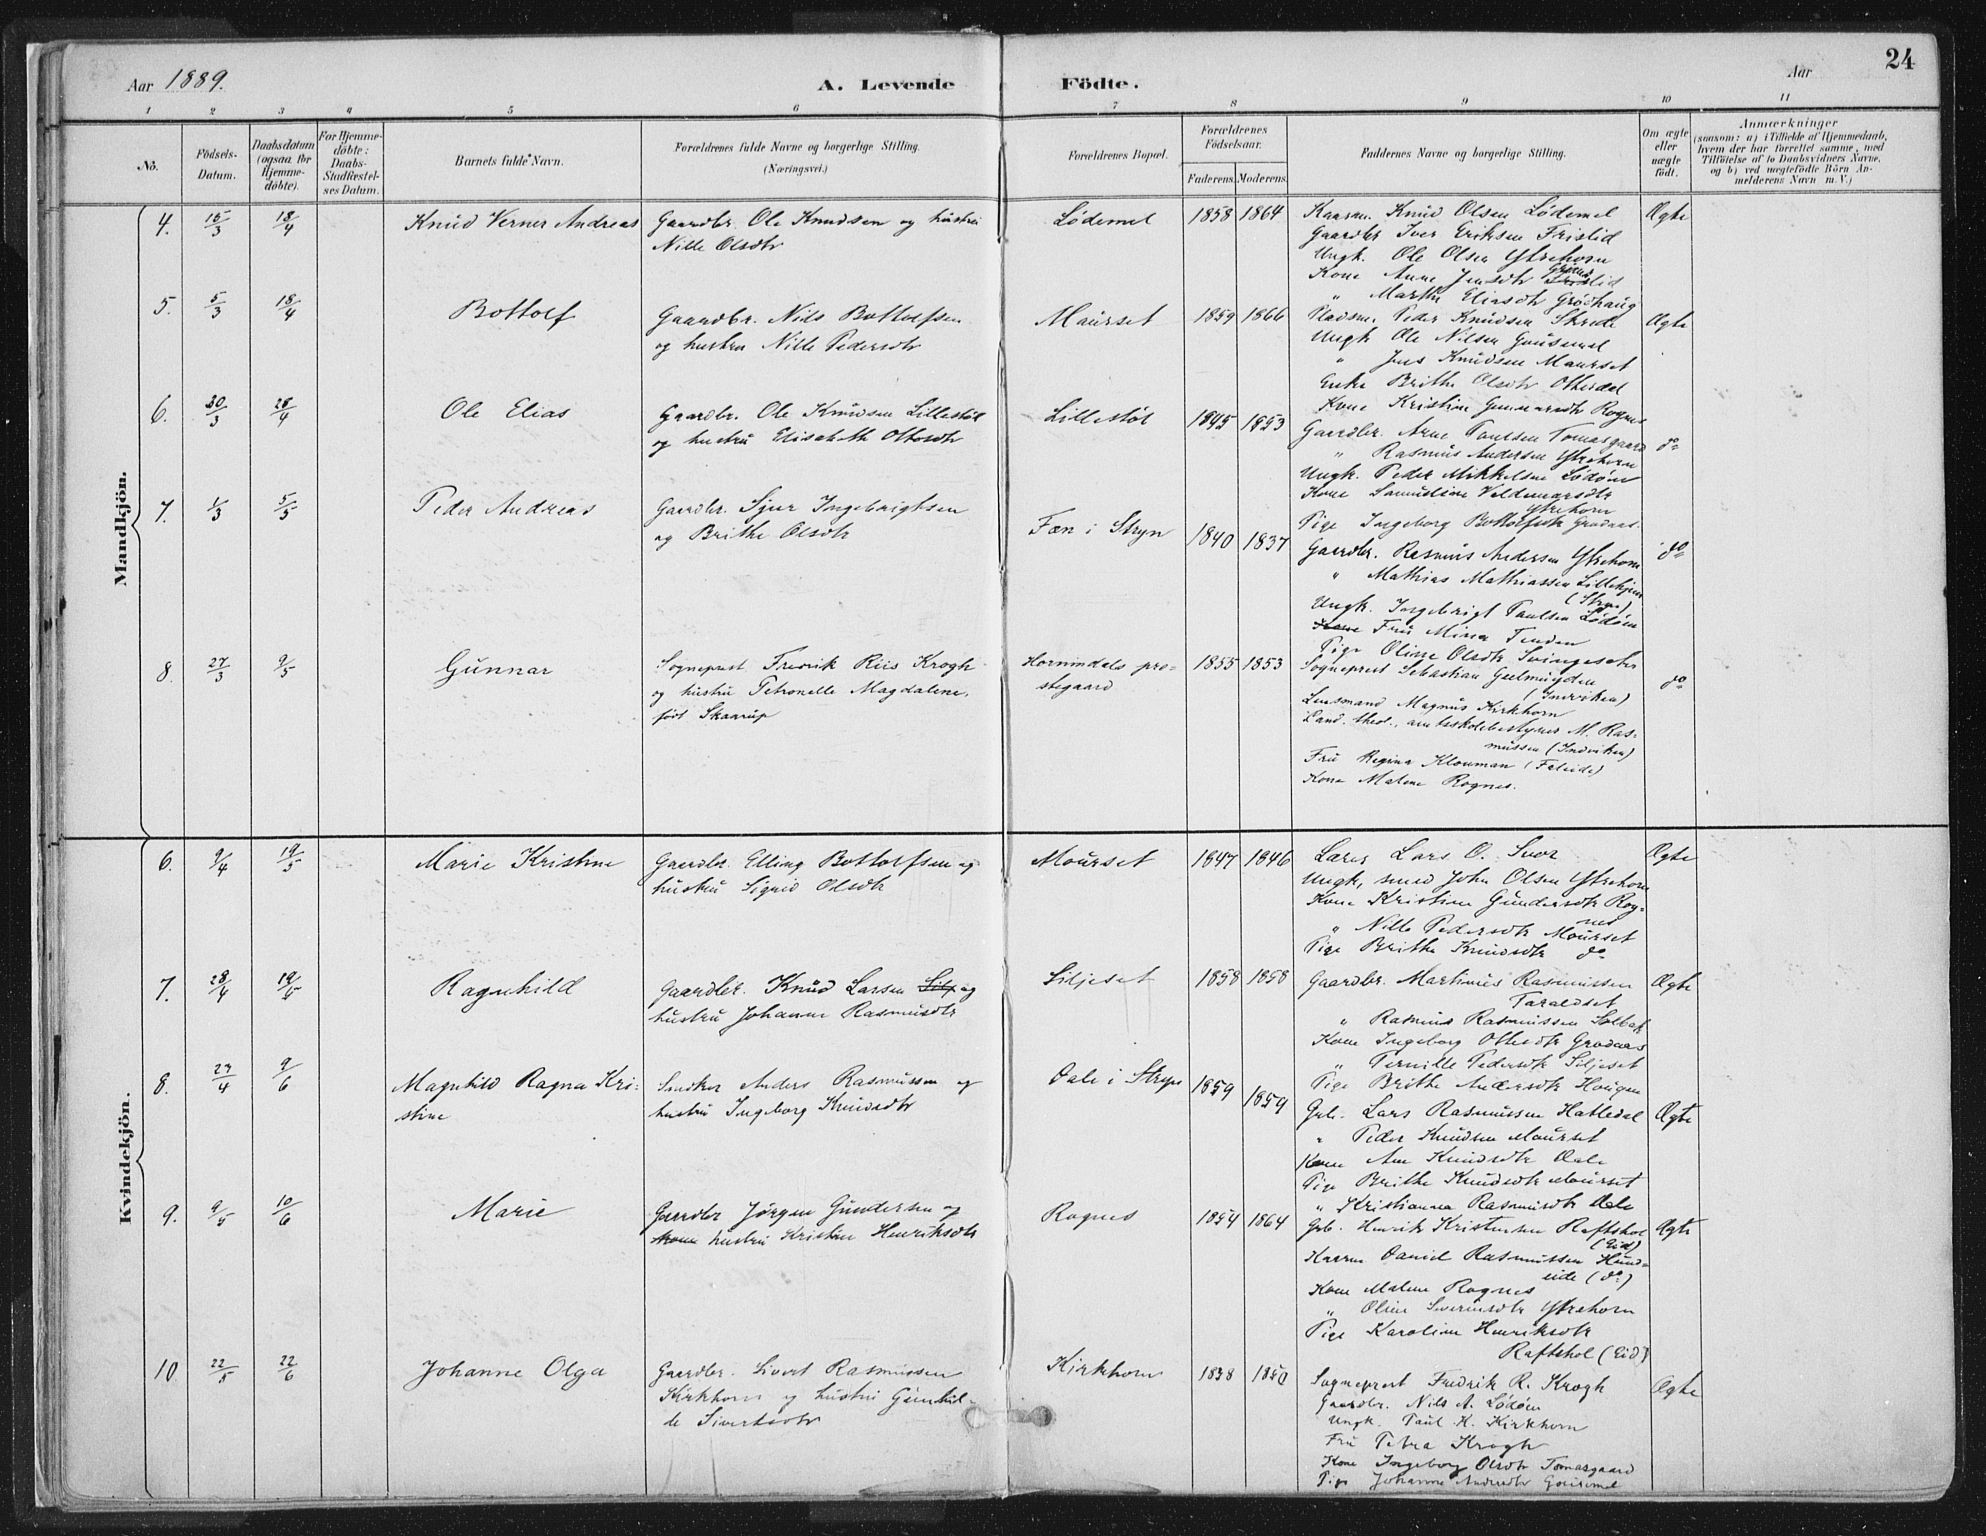 Aar 1889.
A. Levende Födte.
Aar
24
1 2 3 4 5 6 7 8 9 10 11
No.
Födsels-
Datum.
Daabsdatum
(ogsaa for
Hjemme-
döbte).
For Hjemme-
döbte:
Daabs-
Stadfæstel-
ses Datum.
Barnets fulde Navn.
Forældrenes fulde Navne og borgerlige Stilling.
(Næringsvei.)
Forældrenes Bopæl.
Forældrenes
Födselsaar.
Faderens. Moderens.
Faddernes Navne og borgerlige Stilling.
Om ægte
eller
uægte
födt.
Anmærkninger
(saasom: a) i Tilfælde af Hjemmedaab,
hvem der har forrettet samme, med
Tilföielse af to Daabsvidners Navne,
og b) ved uægtefödte Börn An-
melderens Navn m. V.)
Mandkjön.
4. 15/3 18/4 Knud Verner Andreas Gaardbr. Ole Knudsen og hustru
Nille Olsdtr
Lödemel 1858 1864 Kaarm. Knud Olsen Lödemel
Gaardbr Iver Eriksen Frislid
Ungk. Ole Olsen Ytrehorn
Kone Anne Jensdtr
" Marthe Eliasdtr Grödhaug
Ægte
5. 5/3 18/4 Bottolf Gaardbr. Nils Bottolfsen
og hustru Nille Pedersdtr
Maurset 1859 1866 Pladsm. Peder Knudsen Skrede
Ungk Ole Nilsen Gausemel
" Jens Knudsen Maurset
Enke Brithe Olsdtr Otterdal
Kone Kristine Gundersdtr Rognes
Ægte
6. 30/3 28/4 Ole Elias Gaardbr. Ole Knudsen Lillestöl
og hustru Elisabeth Ottosdtr
Lillestöl 1845 1853 Gaardbr. Arne Paulsen Tomasgaard
" Rasmus Andersen Ytrehorn
Ungk. Peder Mikkelsen Lödöen
Kone Samueline Valdemarsdtr
Ytrehorn
Pige Ingeborg Bottolfsdtr Grodaas.
do
7. 1/3 5/5 Peder Andreas Gaardbr. Sjur Ingebrigtsen
og Brithe Olsdtr
Fæn i Stryn 1840 1837 Gaardbr. Rasmus Andersen Ytrehorn
" Mathias Mathiassen
(Stryn)
Ungk. Ingebrigt Paulsen Lödöen
Kone Fru Mina Tenden
Pige Oline Olsdtr Svingeseter
do
8. 27/3 9/5 Gunnar Sogneprest Fredrik Riis Krogh
og hustru Petronelle Magdalene,
født Skaarup
Hornindals pre-
stegaard
1855 1853 Sogneprest Sebastian Geelmuyden
(Indviken)
Lensmand Magnus Kirkhorn
Cand. theol., amtsskolebestyrer M. Ras-
mussen (Indviken)
Fru Regina Klouman (Faleide)
Kone Malene Rognes.
do
Kvindekjön.
6. 9/4 19/5 Marie Kristine Gaardbr. Elling Bottolfsen og
hustru Sigrid Olsdtr
Mourset 1847 1846 Lærer Lars O. Svor
Ungk, smed John Olsen Ytrehorn
Kone Kristine Gundersdtr Rog-
nes
" Nille Pedersdtr Mourset
Pige Brithe Knudsdtr do
Ægte
7. 28/4 19/5 Ragnhild Gaardbr. Knud Larsen Silj og
hustru Johanne Rasmusdtr
Siljeset 1858 1858 Gaardbr. Martinus Rasmussen
Taraldset
" Rasmus Rasmussen Solbak
Kone Ingeborg Ottesdtr Grodaas
" Pernille Pedersdtr Siljeset
Pige Brithe Andersdtr Hougen
Ægte
8. 27/4 9/6 Magnhild Ragna Kri-
stine
Snedker Anders Rasmussen og
hustru Ingeborg Knudsdtr
Dale i Stryn 1859 1859 Gbr. Lars Rasmussen Hatledal
" Peder Knudsen Mourset
Kone Ane Knudsdtr Dale
Pige Brithe Knudsdtr Mourset
" Kristianna Rasmusdtr Dale
Ægte
9. 9/5 10/6 Marie Gaardbr Jörgen Gundersen og
Kone hustru Kristine Henriksdtr
Rognes 1854 1864 Gbr. Henrik Kristensen Raftshol
(Eid)
Kaarm Daniel Rasmussen Hund-
eide (do)
Kone Malene Rognes
" Oline Severinsdtr Ytrehorn
Pige Karoline Henriksdtr
Raftshol (Eid)
Ægte
10 22/5 22/6 Johanne Olga Gaardbr. Sivert Rasmussen
Kirkhorn og hustru Gunhil-
de Sivertsdtr
Kirkhorn 1838 1850 Sogneprest Fredrik R. Krogh
Gaardbr. Nils A. Lödöen
Ungk. Paul K. Kirkhorn
Fru Petra Krogh
Kone Ingeborg Olsdtr Tomasgaard
Pige Johanne Andersdtr Gausemel
Ægte